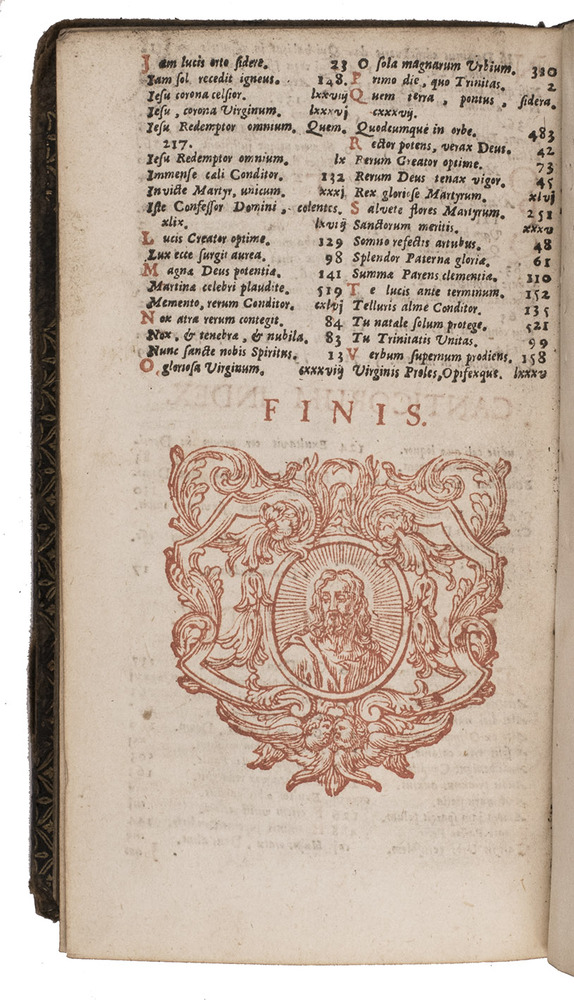 Iam lucis orto sidere. 23
Iam sol recedit igneus. 148.
Iesu corona celsior. lxxviij
Iesu, corona Virginum. lxxxvj
Iesu Redemptor omnium. Quem.
217.
Iesu Redemptor omnium. lx
Immense cæli Conditor. 132
Invicte Martyr, unicum. xxxj
Iste Confessor Domini, colentes.
xlix. lxviij
Lucis Creator optime. 129
Lux ecce surgit aurea. 98
Magna Deus potentia. 141
Martina celebri plaudite. 519
Memento, rerum Conditor. cxlvj
Nox atra rerum contegit. 84
Nox, & tenebræ, & nubila. 83
Nunc sancte nobis Spiritus. 13
O, gloriosa Virginum. cxxxviij
O sola magnarum Urbium. 320
Primo die, quo Trinitas. 2
Quem terra, pontus, sidera.
cxxxvij.
Quodcumque in orbe. 483
Rector potens, verax Deus. 42
Rerum Creator optime. 73
Rerum Deus tenax vigor. 45
Rex gloriose Martyrum. xlvj
Salvete flores Martyrum. 251
Sanctorum meritis. xxxv
Somno refectis artubus. 48
Splendor Paternæ gloriæ. 61
Summæ Parens clementiæ. 110
Te lucis ante terminum. 152
Telluris alme Conditor. 135
Tu natale solum protege. 521
Tu Trinitatis Unitas. 99
Verbum supernum prodiens. 158
Virginis Proles, Opifexque. lxxxv
FINIS.